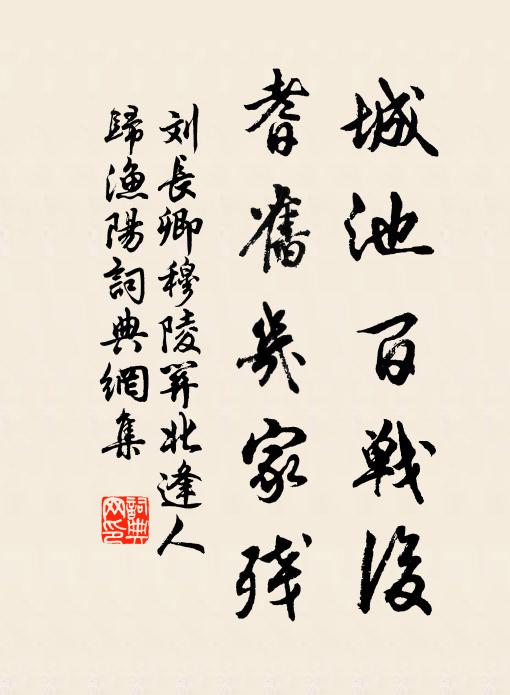 城池百戰後
耆舊幾家殘
刘長卿穆陵関北逢人
歸漁陽詞典網集
詞典
网印